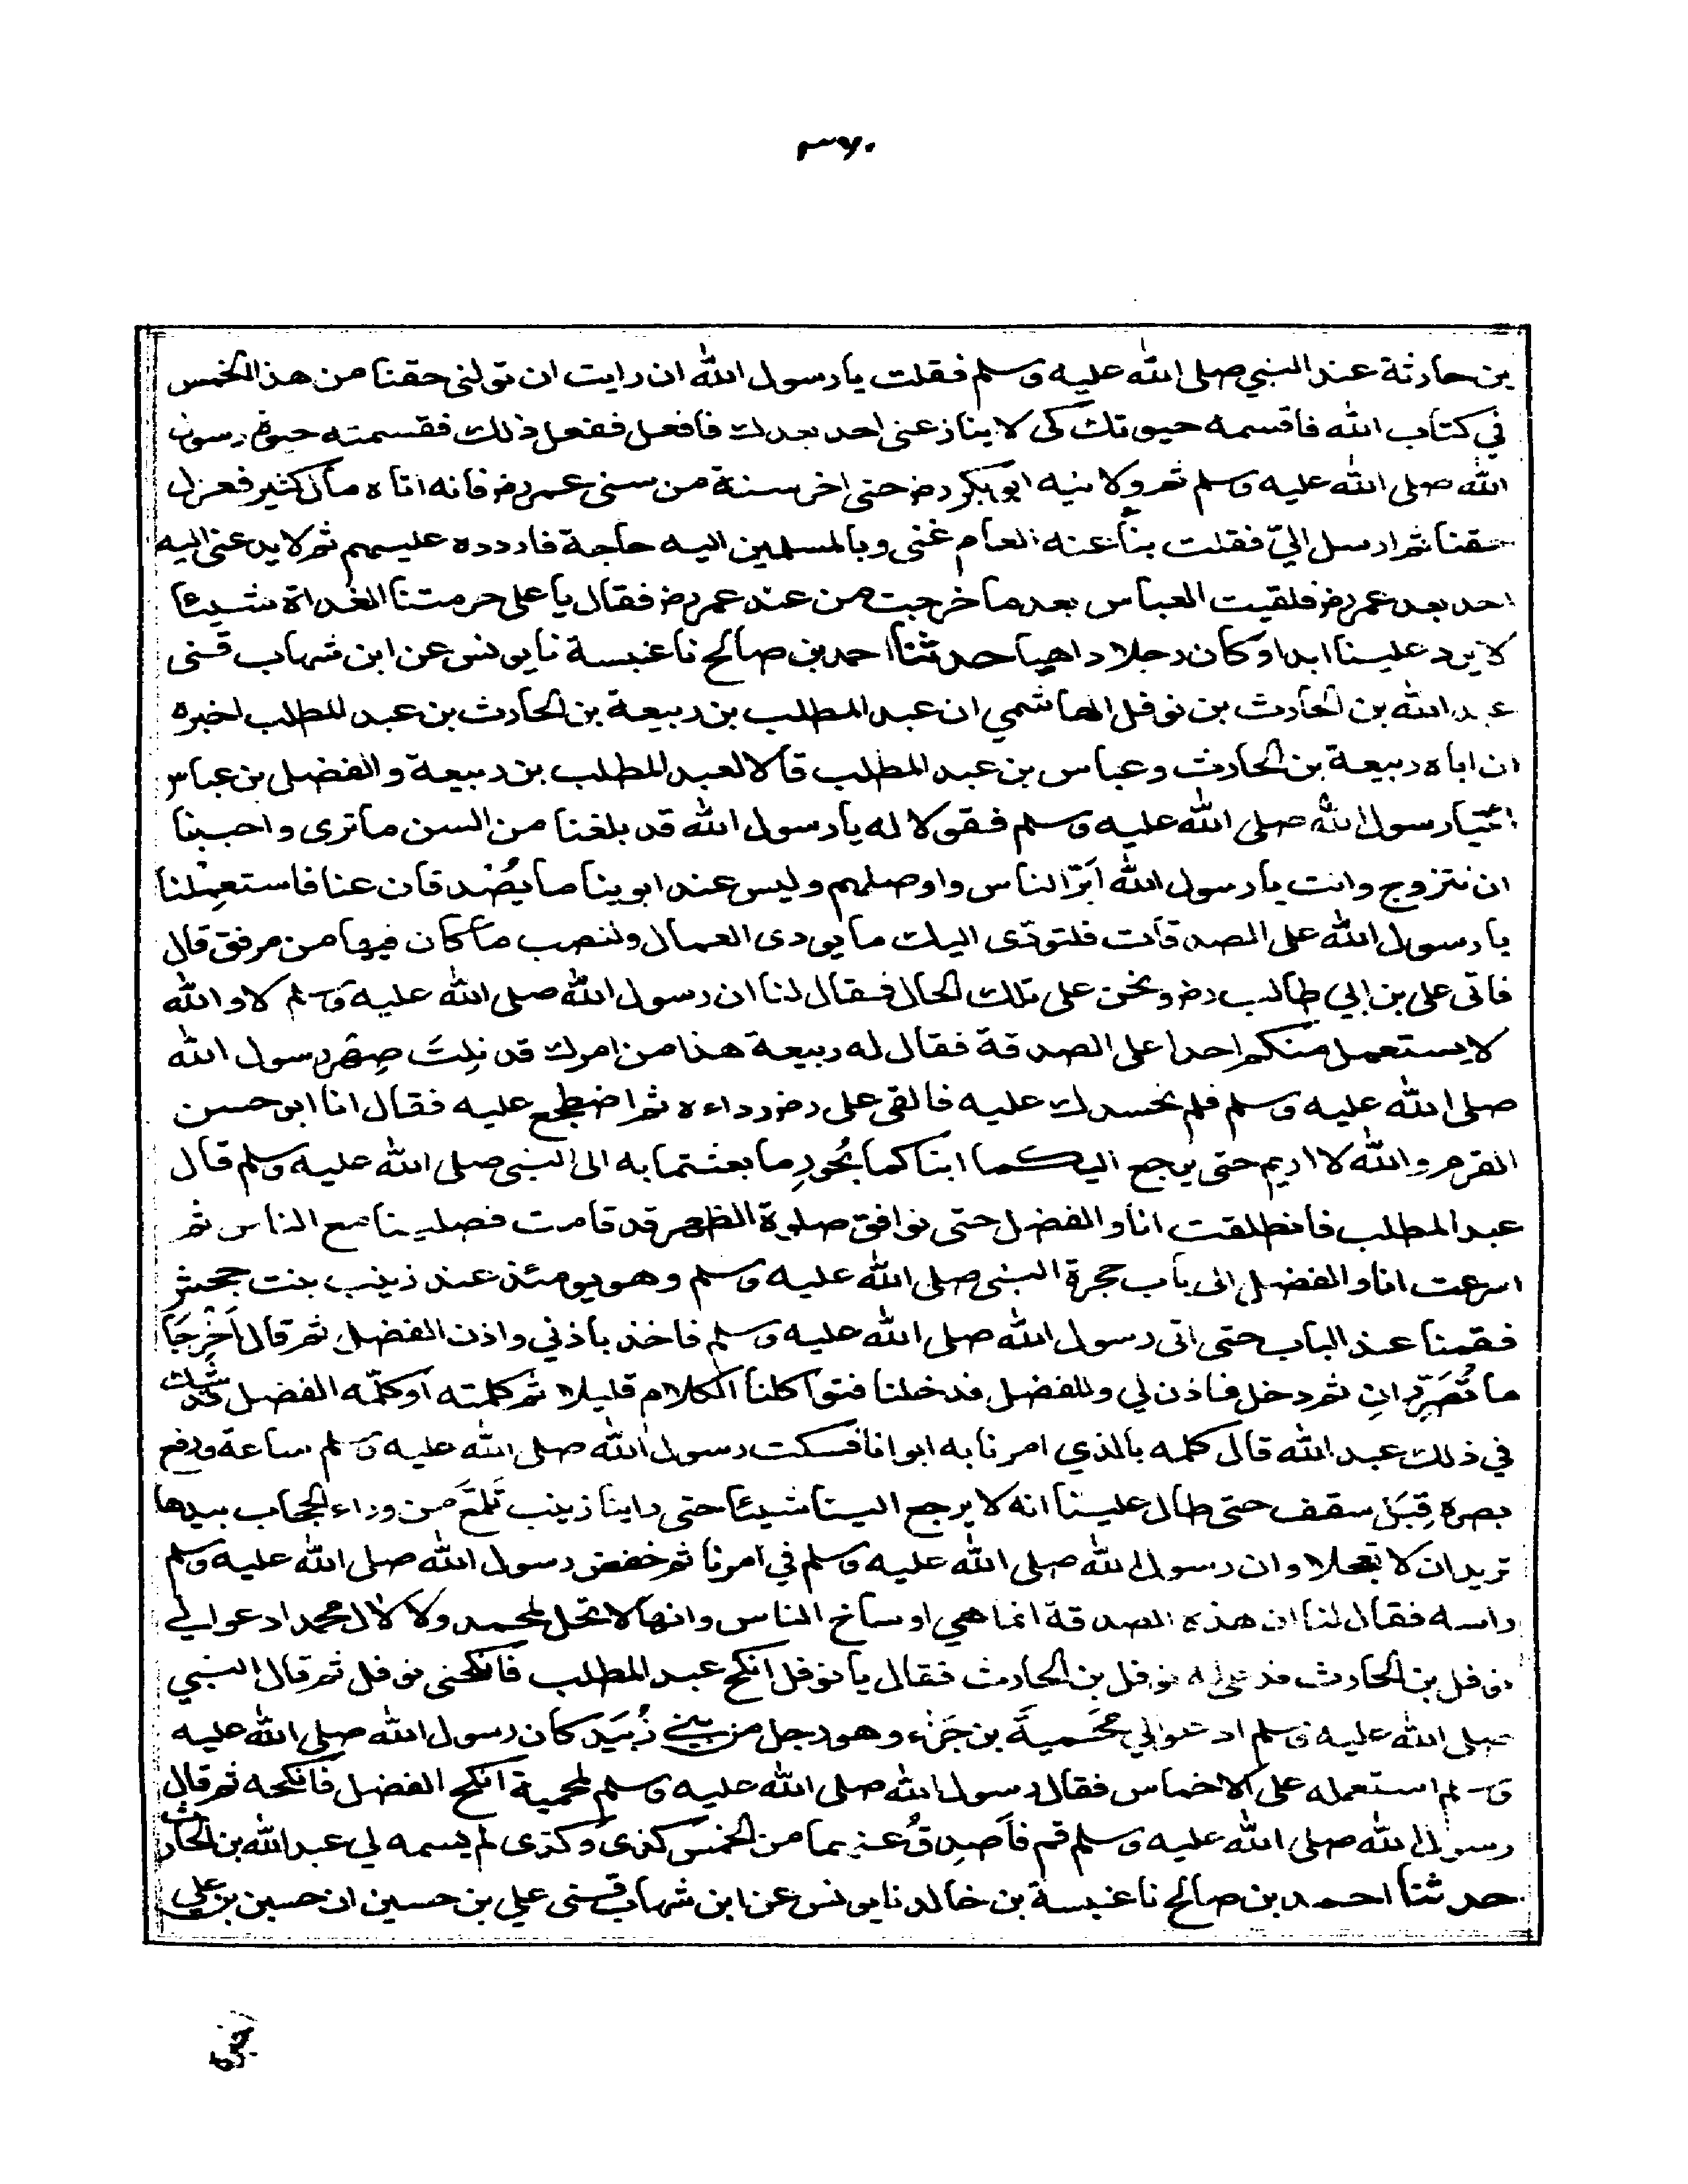 ٣٧٠
بن حارثة عند النبي صلى الله عليه وسلم فقلت يا رسول الله ان رايت ان تولنى حقنا من هذا الخمس
في كتاب الله فاقسمه حيوتك كى لا ينازعنى احد بعدك فافعل ففعل ذلك فقسمته حيوة رسول
الله صلى الله عليه وسلم ثم ولانيه ابو بكر رض حتى اخر سنة من سنى عمر رض فانه اتاه مال كثير فعزل
حقنا ثم ارسل اليّ فقلت بنا عنه العام غنى وبالمسلمين اليه حاجة فاردده عليهم ثم لا يدعنى اليه
احد بعد عمر رض فلقيت العباس بعد ما خرجت من عند عمر رض فقال يا على حرمتنا الغداة شيئا
لا يرد علينا ابدا وكان رجلا داهيا حدثنا احمد بن صالح نا عنبسة نا يونس عن ابن شهاب قسنى
عبد الله بن الحارث بن نوفل الهاشمي ان عبد المطلب بن ربيعة بن الحارث بن عبد المطلب اخبره
ان اباه ربيعة بن الحارث وعباس بن عبد المطلب قالا لعبد المطلب بن ربيعة والفضل بن عباس
ائتيا رسول الله صلى الله عليه وسلم فقولا له يا رسول الله قد بلغنا من السن ما ترى واحببنا
ان نتزوج وانت يا رسول الله اَبرّ الناس واوصلهم وليس عند ابوينا ما يُصْدقان عنا فاستعمِلْنا
يا رسول الله على الصدقات فلنودّى اليك ما يودى العمال ولنصب ما كان فيها من مرفق قال
فاتى على بن ابي طالب رض ونحن على تلك الحال فقال لنا ان رسول الله صلى الله عليه وسلم لا والله
لا يستعمل منكم احدا على الصدقة فقال له ربيعة هذا من امرك قد نِلتَ صِهْر رسول الله
صلى الله عليه وسلم فلم نحسدك عليه فالقى على رض رداءه ثم اضطجع عليه فقال انا ابو حسن
القرم والله لا اريم حتى يرجع اليكما ابناكما بحُورِ ما بعثتما به الى النبى صلى الله عليه وسلم قال
عبد المطلب فانطلقت انا والفضل حتى نوافق صلوة الظهر قد قامت فصلينا مع الناس ثم
اسرعت انا والفضل الى باب حجرة النبى صلى الله عليه وسلم وهو يومئذ عند زينب بنت جحش
فقمنا عند الباب حتى اتى رسول الله صلى الله عليه وسلم فاخذ باذني واذن الفضل ثم قال اَخْرِجَا
ما تُصَرِّرانِ ثم دخل فاذن لي وللفضل فدخلنا فتواكلنا الكلام قليلا ثم كلمته او كلّمه الفضل قد شك
في ذلك عبد الله قال كلمه بالذي امرنا به ابوانا فسكت رسول الله صلى الله عليه وسلم ساعة ورفع
بصره قِبَلَ سقف حتى طال علينا انه لا يرجع الينا شيئا حتى راينا زينب تَلمَعَ من وراء الحجاب بيدها
تريد ان لا تعجلا وان رسول الله صلى الله عليه وسلم في امرنا ثم خفض رسول الله صلى الله عليه وسلم
راسه فقال لنا ان هذه الصدقة انما هي اوساخ الناس وانها لا تحل لمحمد ولا لال محمد ادعوا لي
نوفل بن الحارث فدعى له نوفل بن الحارث فقال يا نوفل انكح عبد المطلب فانكحنى نوفل ثم قال النبي
صلى الله عليه وسلم ادعوا لي مَحْمِيةَ بن جَزْء وهو رجل من بنى زُبَيد كان رسول الله صلى الله عليه
وسلم استعمله على الاخماس فقال رسول الله صلى الله عليه وسلم لمحمية انكح الفضل فانكحه ثم قال
رسول الله صلى الله عليه وسلم قم فاَصدِقُ عنهما من الخمس كذى وكذى لم يسمه لي عبد الله بن الحارث
حدثنا احمد بن صالح نا عنبسة بن خالد نا يونس عن ابن شهاب قسنى علي بن حسين ان حسين بن علي